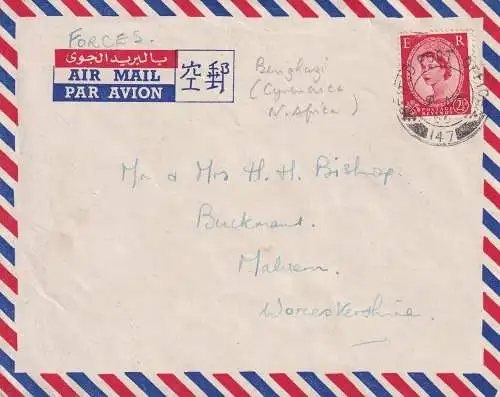 FORCES.
بالبريد الجوى
AIR MAIL
PAR AVION
空郵
Benghazi
(Cyrenaica
N. Africa)
E R
POSTAGE
REVENUE
FIELD POST OFFICE
147
Mr & Mrs H. H. Bishop.
Buckmans.
Malvern.
Worcestershire.